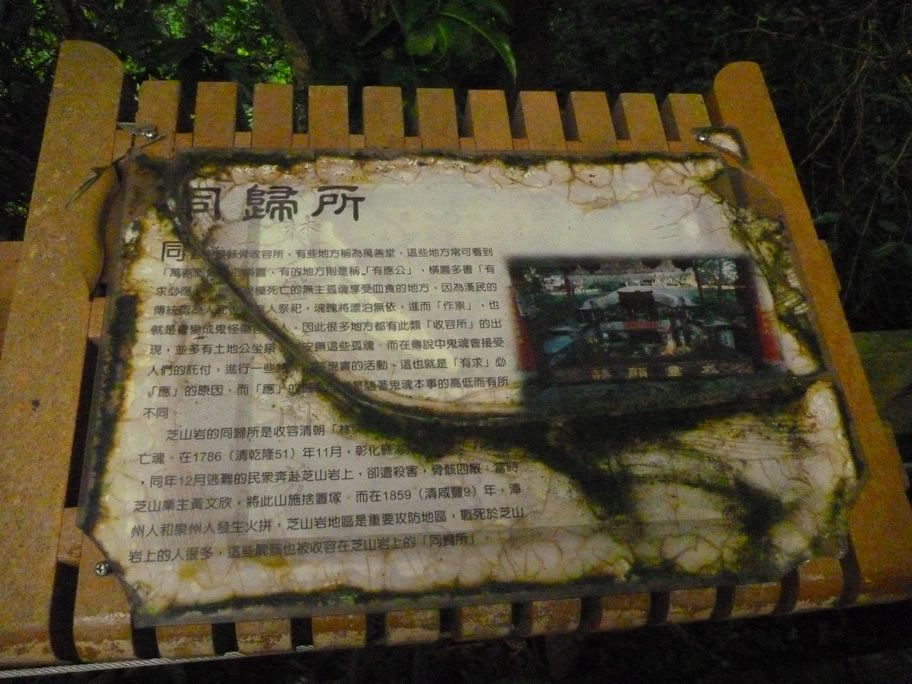 同歸所
同 骸骨收容所，有些地方稱為萬善堂，這些地方常可看到
「萬善同 的橫匾，有的地方則是稱「有應公」，橫匾多書「有
求必應 死亡的無主孤魂享受血食的地方，因為漢民的
傳統 人 人祭祀，魂魄將漂泊無依，進而「作祟」，也
就是會變成鬼怪 人，因此很多地方都有此類「收容所」的出
現，並多有土地公坐鎮 安撫這些孤魂。而在傳說中鬼魂會接受
人們的託付，進行一些 的活動，這也就是「有求」必
「應」的原因，而「應」的 隨著鬼魂本事的高低而有所
不同。
芝山岩的同歸所是收容清朝「林
亡魂。在1786（清乾隆51）年11月，彰化
，同年12月逃難的民眾奔赴芝山岩上，卻遭殺害，骨骸四散。當時
芝山業主黃文欣，將此山施捨置塚。而在1859（清咸豐9）年，漳
州人和泉州人發生火拼，芝山岩地區是重要攻防地區，戰死於芝山
岩上的人很多，這些屍骸也被收容在芝山岩上的「同歸所」。